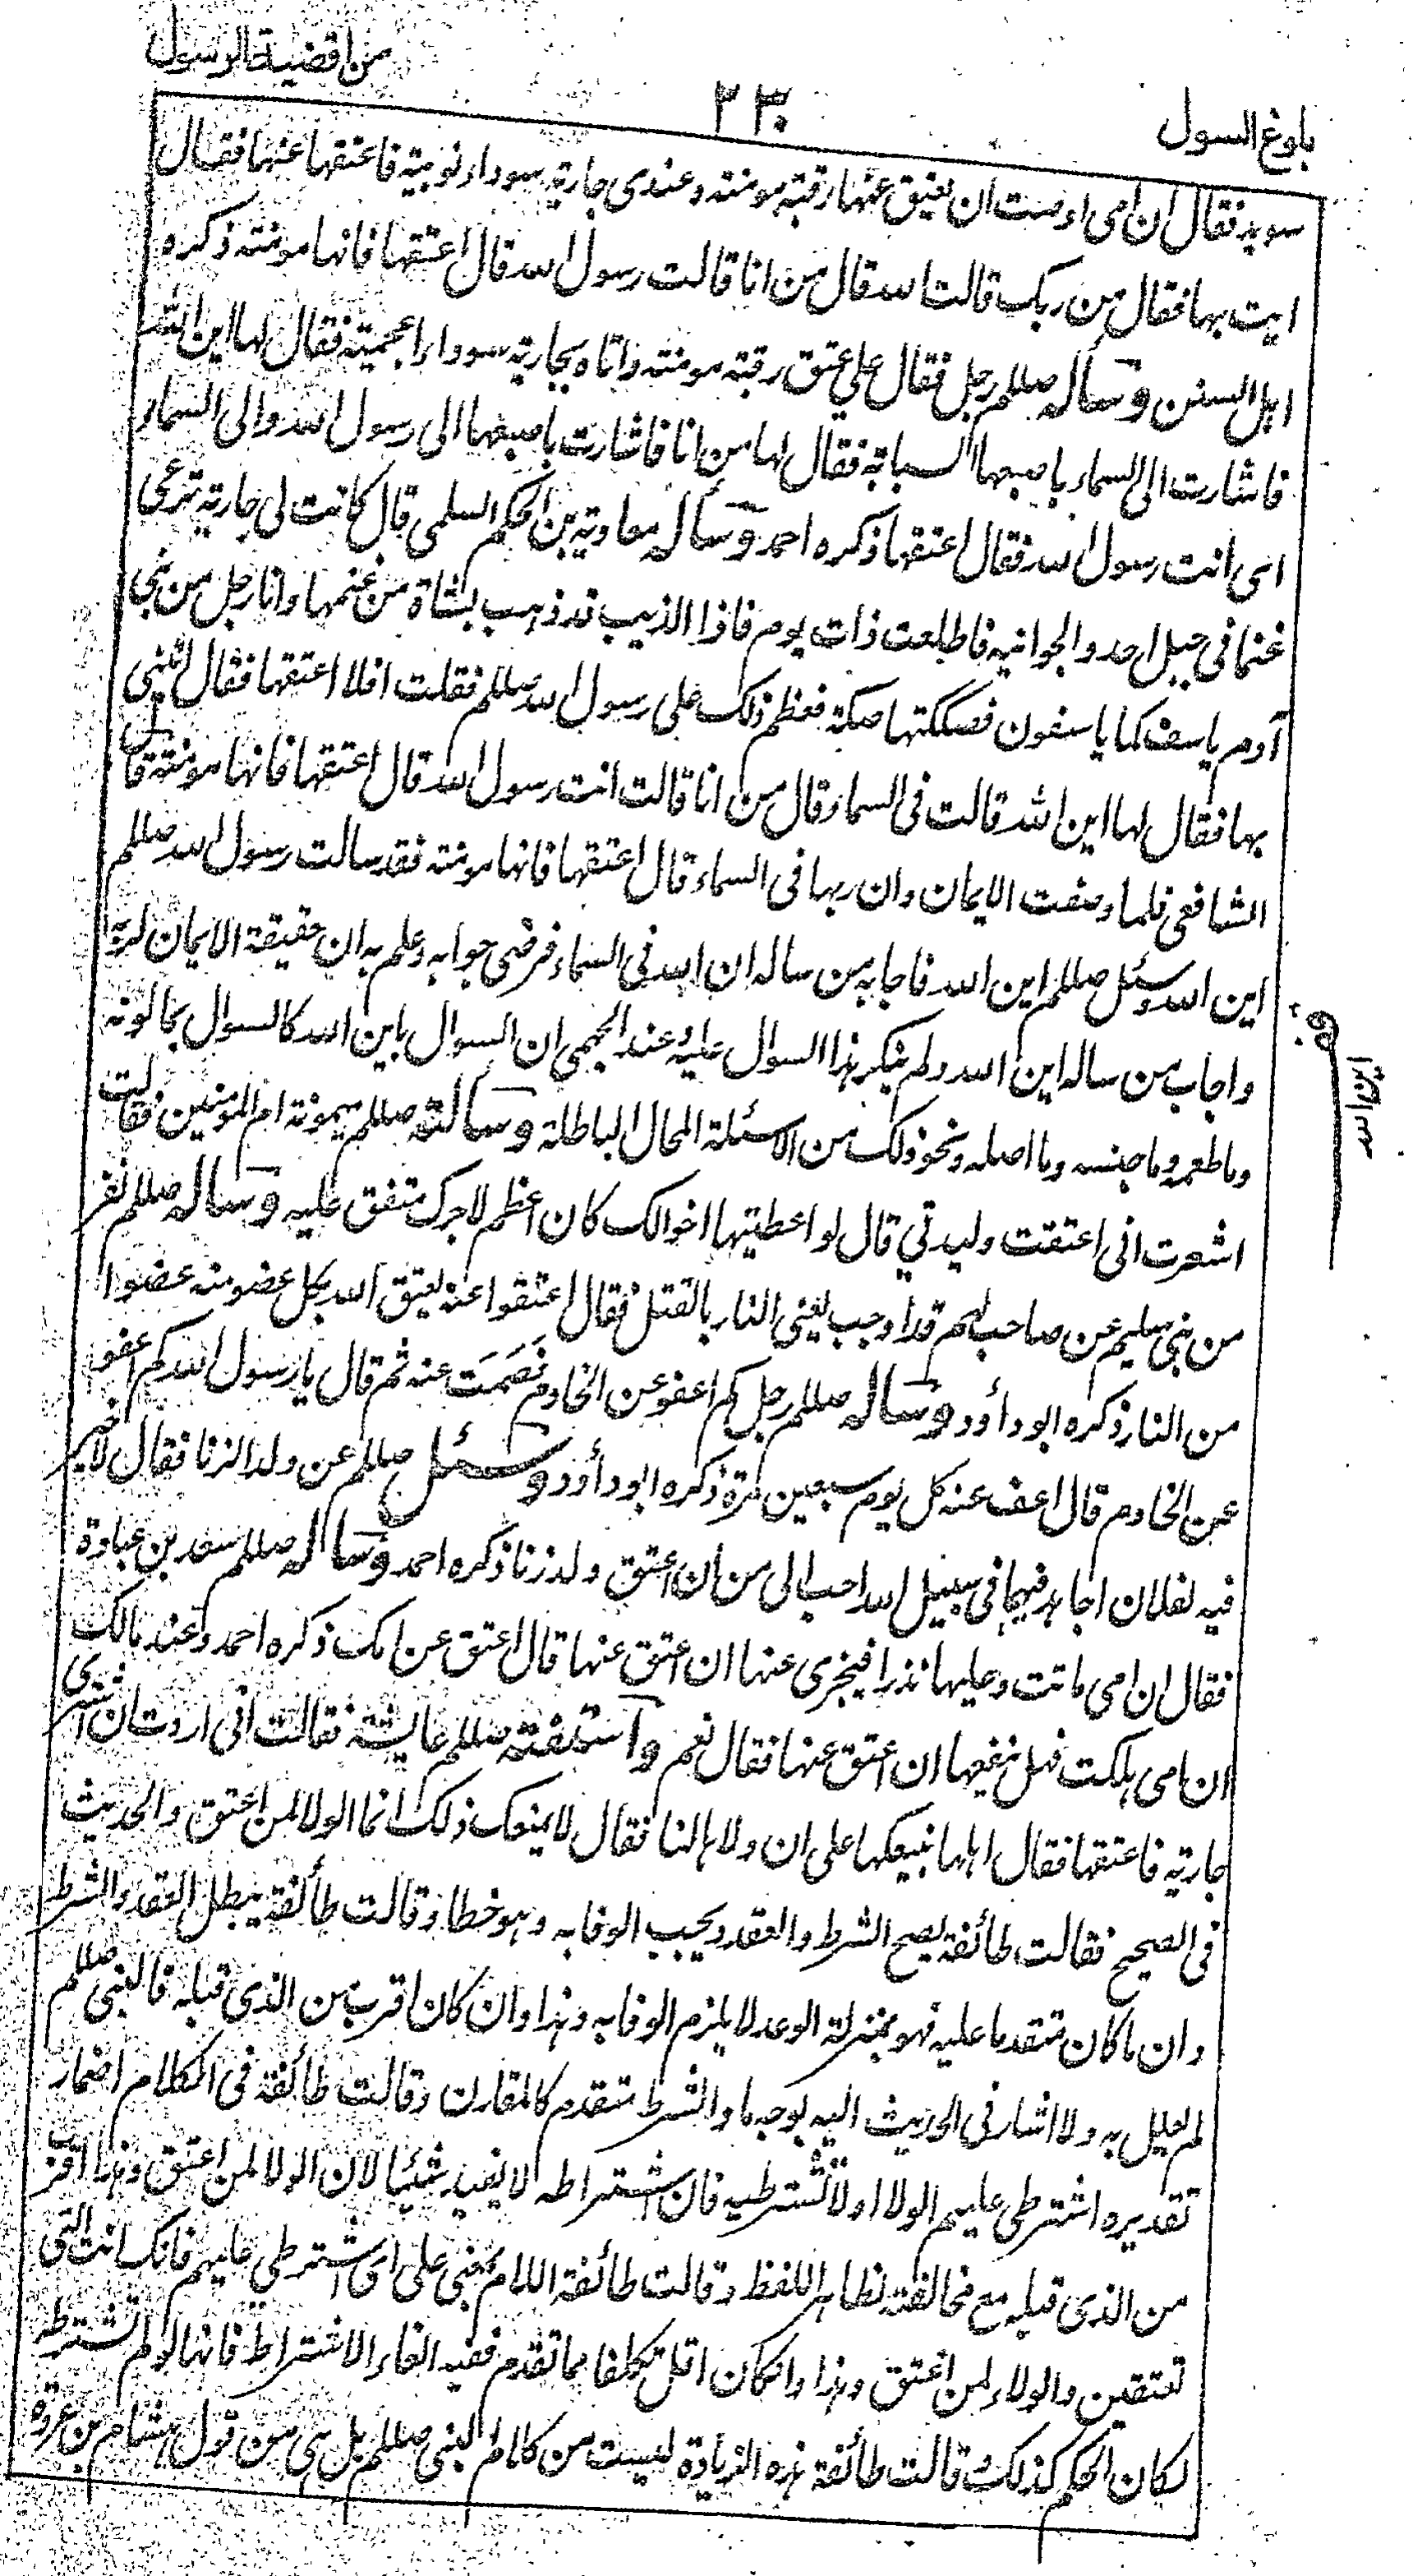 بلوغ السول
٢٣٠
من اقضية الرسول
سويد فقال ان امی اوصت ان نعتق عنها رقبة مومنة وعندی جارية سوداء نوبية فاعتقها عنها فقال
ايت بها فقال من ربک قالت الله قال من انا قالت رسول الله قال اعتقها فانها مومنة ذکره
اہل السنن وسأله صللم رجل فقال علی عتق رقبة مومنة واتاه بجارية سوداء اعجمية فقال لها اين الله
فاشارت الی السماء باصبعها السبابة فقال لها من انا فاشارت باصبعها الی رسول الله والی السماء
ای انت رسول الله فقال اعتقها ذکره احمد وسأله معاوية بن الحکم السلمی قال کانت لی جارية ترعی
غنما فی جبل احد والجوانيه فاطلعت ذات يوم فاذا الذيب قد ذہب بشاة من غنمها وانا رجل من بنی
آدم ياسف کما ياسفون فصککتها صکة فعظم ذلک علی رسول الله صللم فقلت افلا اعتقها فقال ائتنی
بها فقال لها اين الله قالت فی السماء قال من انا قالت انت رسول الله قال اعتقها فانها مومنة قال
الشافعی فلما وصفت الايمان وان ربها فی السماء قال اعتقها فانها مومنة فقد سالت رسول الله صللم
اين الله وسئل صللم اين الله فاجابه من ساله ان الله فی السماء فرضی جوابه وعلم به ان حقيقة الايمان لربه
واجاب من ساله اين الله ولم ينکر ہذا السوال عليه وعند الجهمی ان السوال باين الله کالسوال بما لونه
وما طعمه وما جنسه وما اصله ونحو ذلک من الاسئلة المحال الباطلة وسألته صللم ميمونة ام المومنين فقالت
اشعرت انی اعتقت وليدتی قال لو اعطيتها اخوالک کان اعظم لاجرک متفق عليه وسأله صللم نفر
من بنی سليم عن صاحب لهم قد اوجب يعنی النار بالقتل فقال اعتقوا عنه يعتق الله بکل عضو منه عضوا
من النار ذکره ابو دأود وسأله صللم رجل کم اعفو عن الخادم فصَمَتَ عنه ثم قال يا رسول الله کم اعفو
عن الخادم قال اعف عنه کل يوم سبعين مرة ذکره ابو دأود وسئل صللم عن ولد الزنا فقال لا خير
فيه لنعلان اجاہد فيهما فی سبيل الله احب الی من ان اعتق ولد زنا ذکره احمد وسأله صللم سعد بن عبادة
فقال ان امی ماتت وعليها نذر افيجزی عنها ان اعتق عنها قال اعتق عن امک ذکره احمد وعند مالک
ان امی ہلکت فهل ينفعها ان اعتق عنها فقال نعم واستفتته صللم عايشة فقالت انی اردت ان اشتری
جارية فاعتقها فقال اہلها نبيعکها علی ان ولاہا لنا فقال لا يمنعک ذلک انما الولا لمن اعتق والحديث
فی الصحيح فقالت طائفة يصح الشرط والعقد ويجب الوفا به وہو خطا وقالت طائفة يبطل العقد والشرط
وان ما کان متقدما عليه فهو بمنزلة الوعد لا يلزم الوفا به وہذا وان کان اقرب من الذی قبله فالنبی صللم
لم يعلل به ولا اشار فی الحديث اليه بوجه ما والشرط متقدم کالمقارن وقالت طائفة فی الکلام اضمار
تقديره اشترطی عليهم الولا او لا تشترطيه فان اشتراطه لا يفيد شيئا لان الولا لمن اعتق وہذا اقرب
من الذی قبله مع مخالفته لظاہر اللفظ وقالت طائفة اللام بمعنی علی ای اشترطی عليهم فانک انت التی
تعتقين والولاء لمن اعتق وہذا وان کان اقل تکلفا مما تقدم ففيه الغاء الاشتراط فانها لو لم تشترطه
لکان الحکم کذلک وقالت طائفة ہذه الزيادة ليست من کلام النبی صللم بل ہی من قول ہشام بن عروة